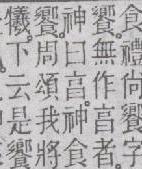 食禮尙饗字
饗無作亯者
神曰亯神食
周頌我將
儀下云是饗